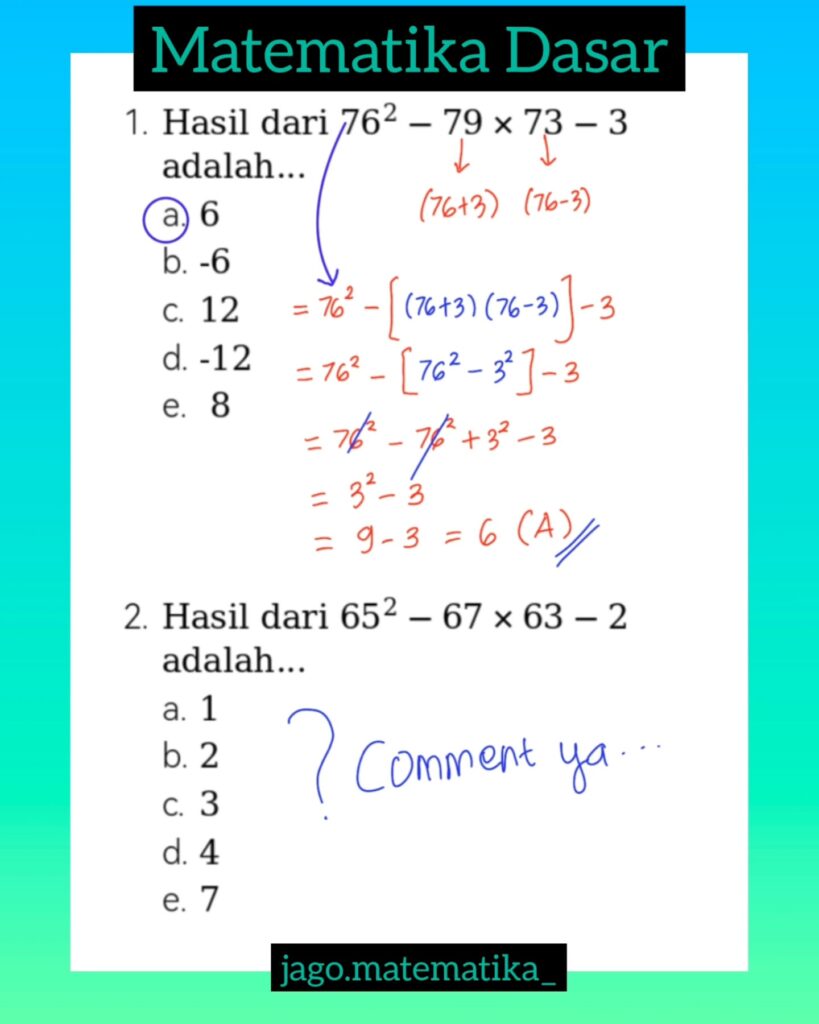 Matematika Dasar
1. Hasil dari 76² – 79 × 73 – 3
adalah...
↓ ↓
(76+3) (76-3)
a. 6
b. -6
c. 12
d. -12
e. 8
= 76² - [(76+3)(76-3)] - 3
= 76² - [76² - 3²] - 3
= 76² - 76² + 3² - 3
= 3² - 3
= 9 - 3 = 6 (A)
2. Hasil dari 65² – 67 × 63 – 2
adalah...
a. 1
b. 2
c. 3
d. 4
e. 7
? Comment ya...
jago.matematika_